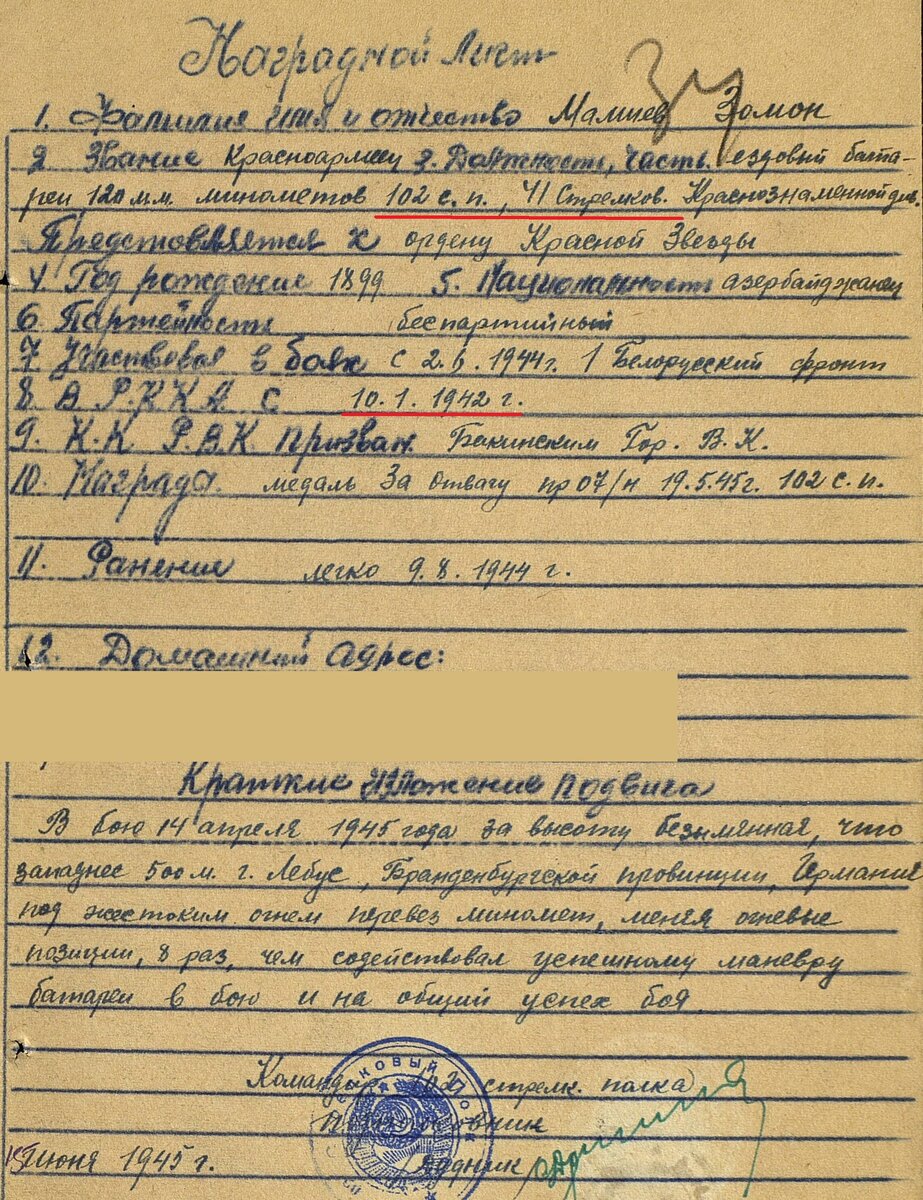 Наградной Лист
1. Фамилия имя и отчество Мамиев Зомон
2 Звание Красноармеец 3. Должность, часть. ездовый бата-
реи 120 м.м. минометов 102 с.п., 41 Стрелков. Краснознаменной див.
Представляется к ордену Красной Звезды
4 Год рождения 1899 5. Национальность азербайджанец
6 Партейность беспартийный
7 Участвовал в боях с 2.6.1944г. 1 Белорусский фронт
8 В Р.К.К.А с 10.1.1942 г.
9. К.К Р.В.К призван Бакинским Гор. В.К.
10. Награда. медаль За отвагу пр 07/н 19.5.45г. 102 с.п.
11. Ранение легко 9.8.1944 г.
12. Домашний адрес:
Краткие изложение подвига
В бою 14 апреля 1945 года за высоту безымянная, что
западнее 500 м. г. Лебус, Бранденбургской провинции, Германие
под жестоким огнем перевез миномет, меняя огневые
позиции, 8 раз, чем содействовал успешному маневру
батареи в бою и на общий успех боя
Командир 102 стрелк. полка
Подполковник
15 Июня 1945 г.